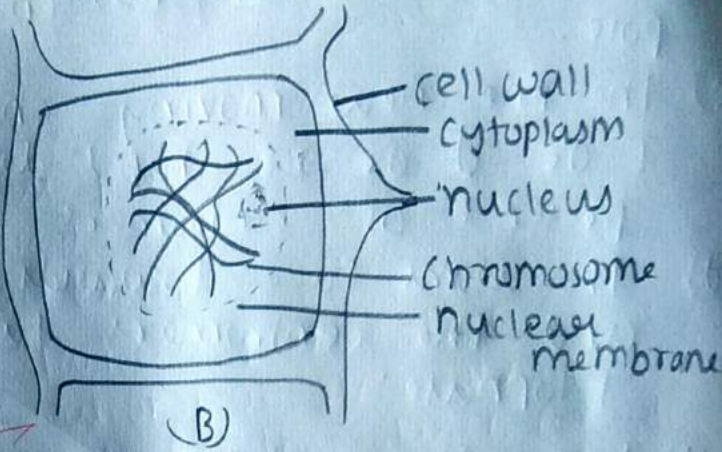 cell wall
cytoplasm
nucleus
chromosome
nuclear
membrane
(B)